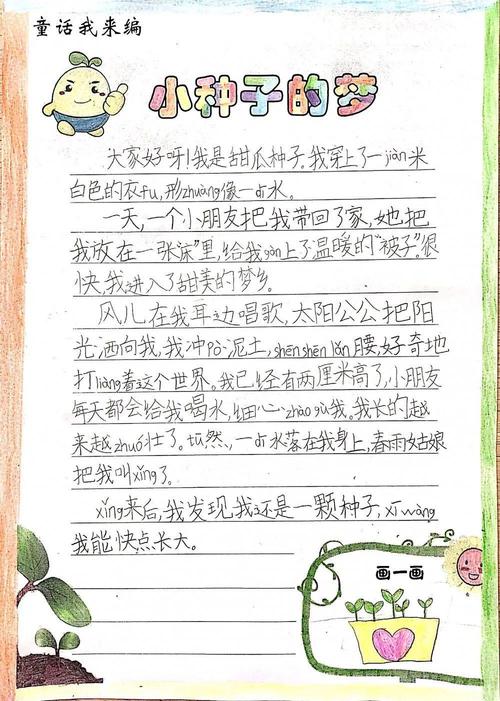 童话我来编
小种子的梦
大家好呀!我是甜瓜种子。我穿上了一jiàn米
白色的衣fu,形zhuàng像一dī水。
一天,一个小朋友把我带回了家,她把
我放在一张床"里,给我gài上了温暖的"被子"。很
快,我进入了甜美的梦乡。
风儿在我耳边唱歌,太阳公公把阳
光洒向我,我冲pò泥土,shēnshēn lǎn腰,好奇地
打liàng着这个世界。我已经有两厘米高了,小朋友
每天都会给我喝水,细心zhào gù我。我长的越
来越zhuó壮了。tū然,一dī水落在我身上,春雨姑娘
把我叫xǐng了。
xǐng来后,我发现我还是一颗种子,xī wàng
我能快点长大。
画一画